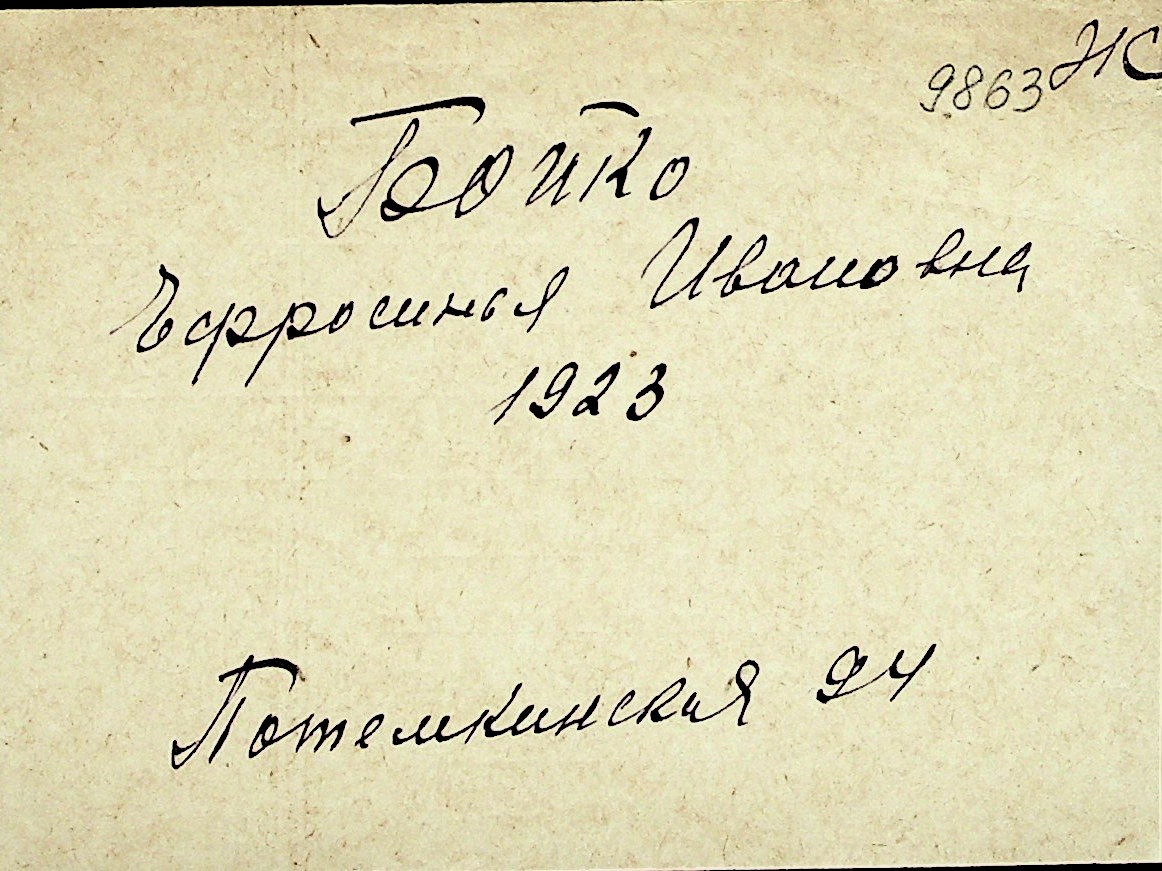 9863 НС
Бойко
Ефросинья Ивановна
1923
Потемкинская 24